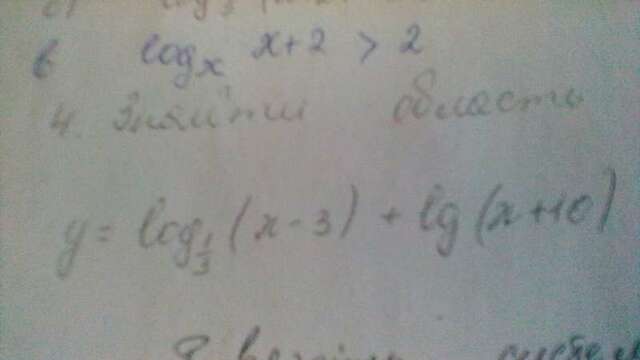 в log_x x+2 > 2
4. Знайти область
y = log_{1/3} (x-3) + lg(x+10)